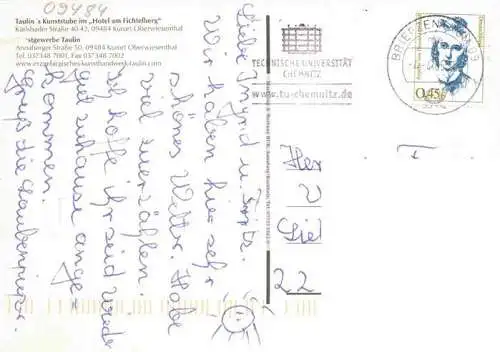 09484
Taulin´s Kunststube im „Hotel am Fichtelberg"
Karlsbader Straße 40-42, 09484 Kurort Oberwiesenthal
stgewerbe Taulin
Annaberger Straße 50, 09484 Kurort Oberwiesenthal
Tel. 037348 7001, Fax 037348 7002
www.erzgebirgisches-kunsthandwerk-taulin.com
Liebe Ingrid u.
Wir haben hier sehr
schönes Wetter. Habe
viel zu erzählen.
Ich hoffe ihr seid wieder
gut zuhause ange=
kommen.
Grüß die Laubenpieper.
TECHNISCHE UNIVERSITÄT
CHEMNITZ
www.tu-chemnitz.de
BRIEFZENTRUM 09
0,45€
Her
22